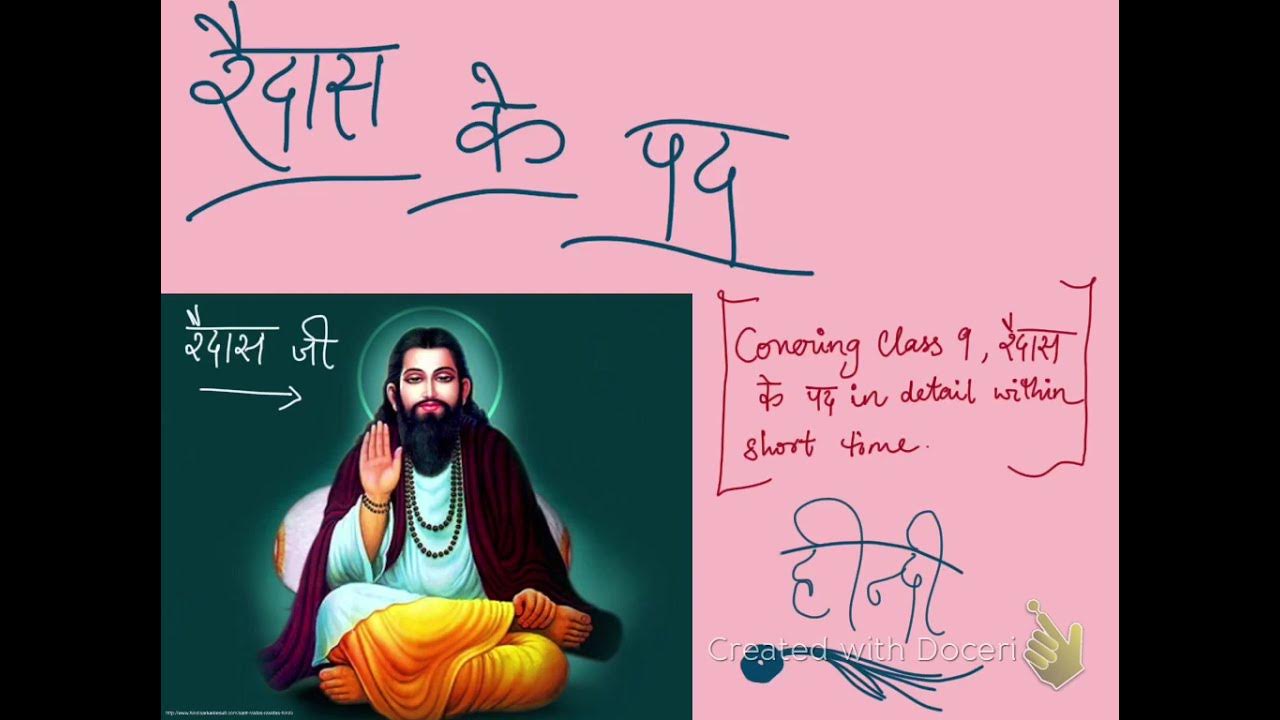 रैदास के पद
रैदास जी
Covering Class 9, रैदास
के पद in detail within
short time.
हीन्दी
Created with Doceri